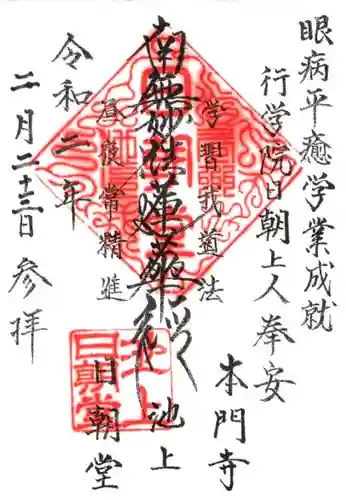 眼病平癒学業成就
行学院日朝上人奉安
学習我道法
南無妙法蓮華経
昼夜常精進
令和二年
二月二十三日参拝
本門寺
池上
日朝堂
池上
日朝堂